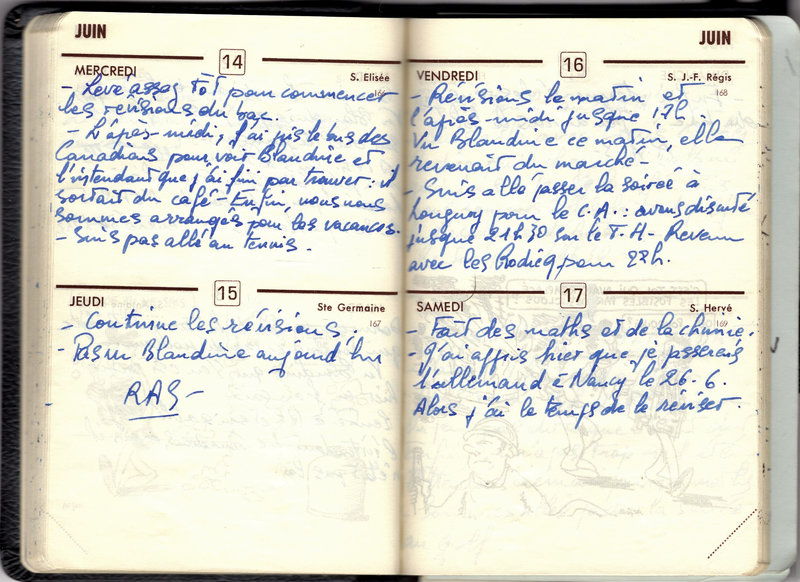 JUIN
MERCREDI 14 S. Elisée
166
- Levé assez tôt pour commencer
les révisions du bac.
- L'après-midi, j'ai pris le bus des
Canadians pour voir Blandine et
l'intendant que j'ai fini par trouver : il
sortait du café - Enfin, nous nous
sommes arrangés pour les vacances.
- Suis pas allé au tennis.
JEUDI 15 Ste Germaine
167
- Continue les révisions.
- Pas vu Blandine aujourd'hui
RAS -
JUIN
VENDREDI 16 S. J.-F. Régis
168
- Révisions le matin et
l'après-midi jusque 17h.
Vu Blandine ce matin, elle
revenait du marché -
- Suis allé passer la soirée à
Longwy pour le C.A. : avons discuté
jusque 21h30 sur le T.H - Revenu
avec les Rodicq pour 22h.
SAMEDI 17 S. Hervé
169
- Fait des maths et de la chimie.
- J'ai appris hier que je passerais
l'allemand à Nancy le 26.6.
Alors j'ai le temps de le réviser.